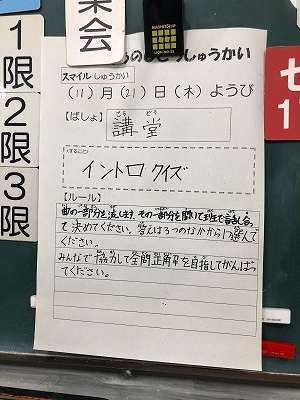 集会
1限
2限
3限
七
1
しゅうかい
スマイルしゅうかい
(11)月(21)日(木)ようび
【ばしょ】
こう どう
講堂
イントロクイズ
【ルール】
曲の一部分を流します。その一部分を聞いて班で話し合っ
て決めてください。答えは3つのなかから1つ選んで
ください。
みんなで協力して全問正解を目指してがんばっ
てください。